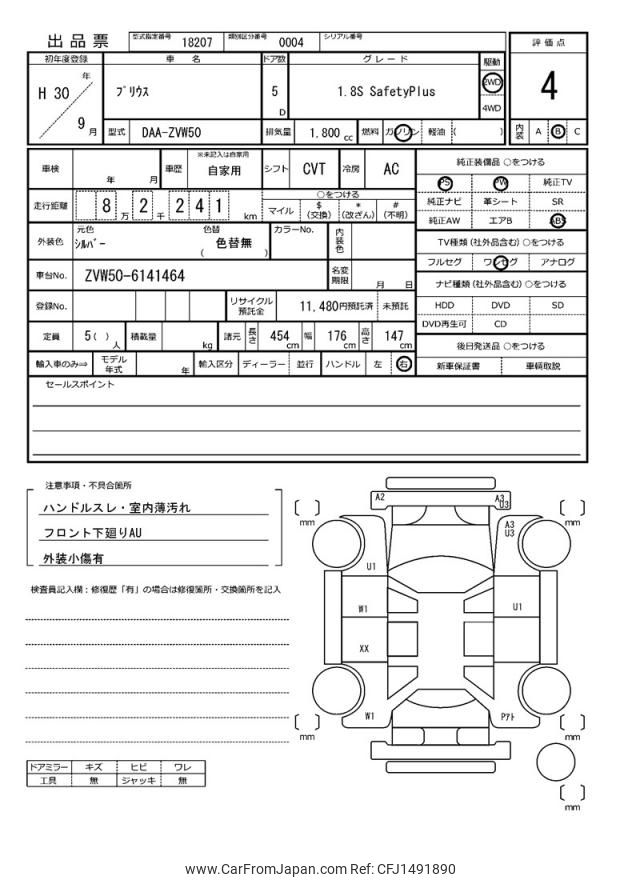 出品票 型式指定番号 18207 類別区分番号 0004 シリアル番号
初年度登録 車 名 ドア数 グレード 駆動 評価点
H 30 年 9 月 プリウス 5 D 1.8S SafetyPlus 2WD 4WD 4
型式 DAA-ZVW50 排気量 1,800 cc 燃料 ガソリン 軽油 ( ) 内装 A B C
車検 年 月 車歴 ※未記入は自家用 自家用 シフト CVT 冷房 AC
走行距離 8 万 2 千 2 4 1 km ○をつける マイル $ (交換) * (改ざん) # (不明)
外装色 元色 シルバー 色替 色替無 ( ) カラーNo. 内装色
車台No. ZVW50-6141464 名変期限 月 日
登録No. リサイクル預託金 11,480円預託済 未預託
定員 5 ( ) 人 積載量 kg 諸元 長さ 454 cm 幅 176 cm 高さ 147 cm
輸入車のみ⇒ モデル年式 年 輸入区分 ディーラー 並行 ハンドル 左 右
純正装備品 ○をつける
PS PW 純正TV
純正ナビ 革シート SR
純正AW エアB ABS
TV種類 (社外品含む) ○をつける
フルセグ ワンセグ アナログ
ナビ種類 (社外品含む) ○をつける
HDD DVD SD
DVD再生可 CD
後日発送品 ○をつける
新車保証書 車輌取説
セールスポイント
注意事項・不具合箇所
ハンドルスレ・室内薄汚れ
フロント下廻りAU
外装小傷有
検査員記入欄：修復歴「有」の場合は修復箇所・交換箇所を記入
ドアミラー キズ ヒビ ワレ
工具 無 ジャッキ 無
A2 A3 U3
mm A3 U3 mm
U1
W1 U1
XX
W1 Pアト
mm mm
mm
www.CarFromJapan.com Ref: CFJ1491890